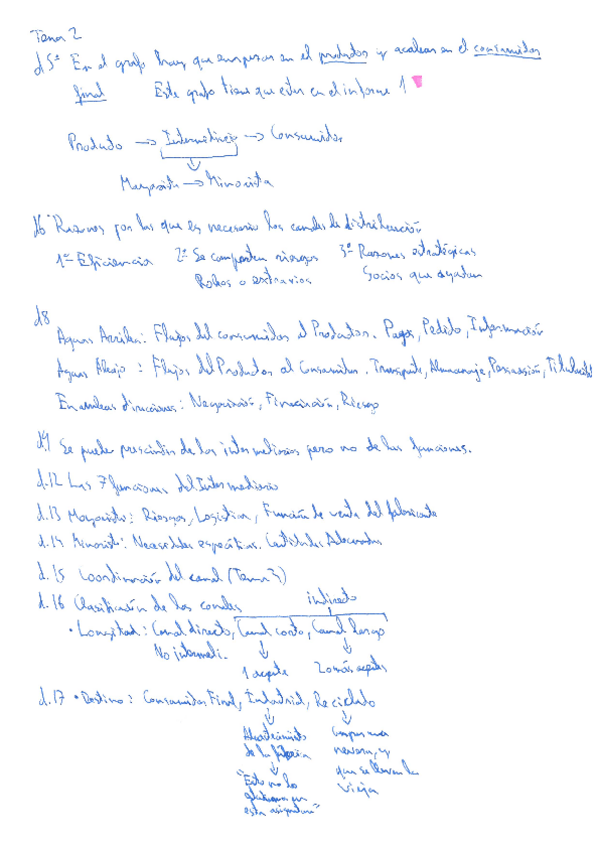 Tema 2
d5º En el grafo hay que empezar en el productor y acabar en el consumidor
final Este grafo tiene que estar en el informe 1
Productor → Intermediario → Consumidor
Mayorista → Minorista
d6 Razones por las que es necesario los canales de distribución
1º- Eficiencia 2º- Se comparten riesgos 3º Razones estratégicas
Robos o extravios Socios que ayudan
d8
Aguas Arriba: Flujos del consumidor al Productor. Pagos, Pedido, Información
Aguas Abajo: Flujos del Productor al Consumidor. Transporte, Almacenaje, Posesión, Titularidad
En ambas direcciones: Negociación, Financiación, Riesgo
d9 Se puede prescindir de los intermediarios pero no de las funciones.
d.12 Las 7 funciones del Intermediario
d.13 Mayorista: Riesgos, Logística, Función de venta del fabricante
d.14 Minorista: Necesidades específicas. Cantidades Adecuadas
d.15 Coordinación del canal (Tema 3)
d.16 Clasificación de los canales indirecto
• Longitud: Canal directo, Canal corto, Canal largo
No intermedi. 1 agente 2 o más agentes
d.17 • Destino: Consumidor Final, Industrial, Reciclado
Abastecimiento
de la fábrica
"Esto no lo
en
esta asignatura"
Compras una
nevera, y
que se llevan la
vieja